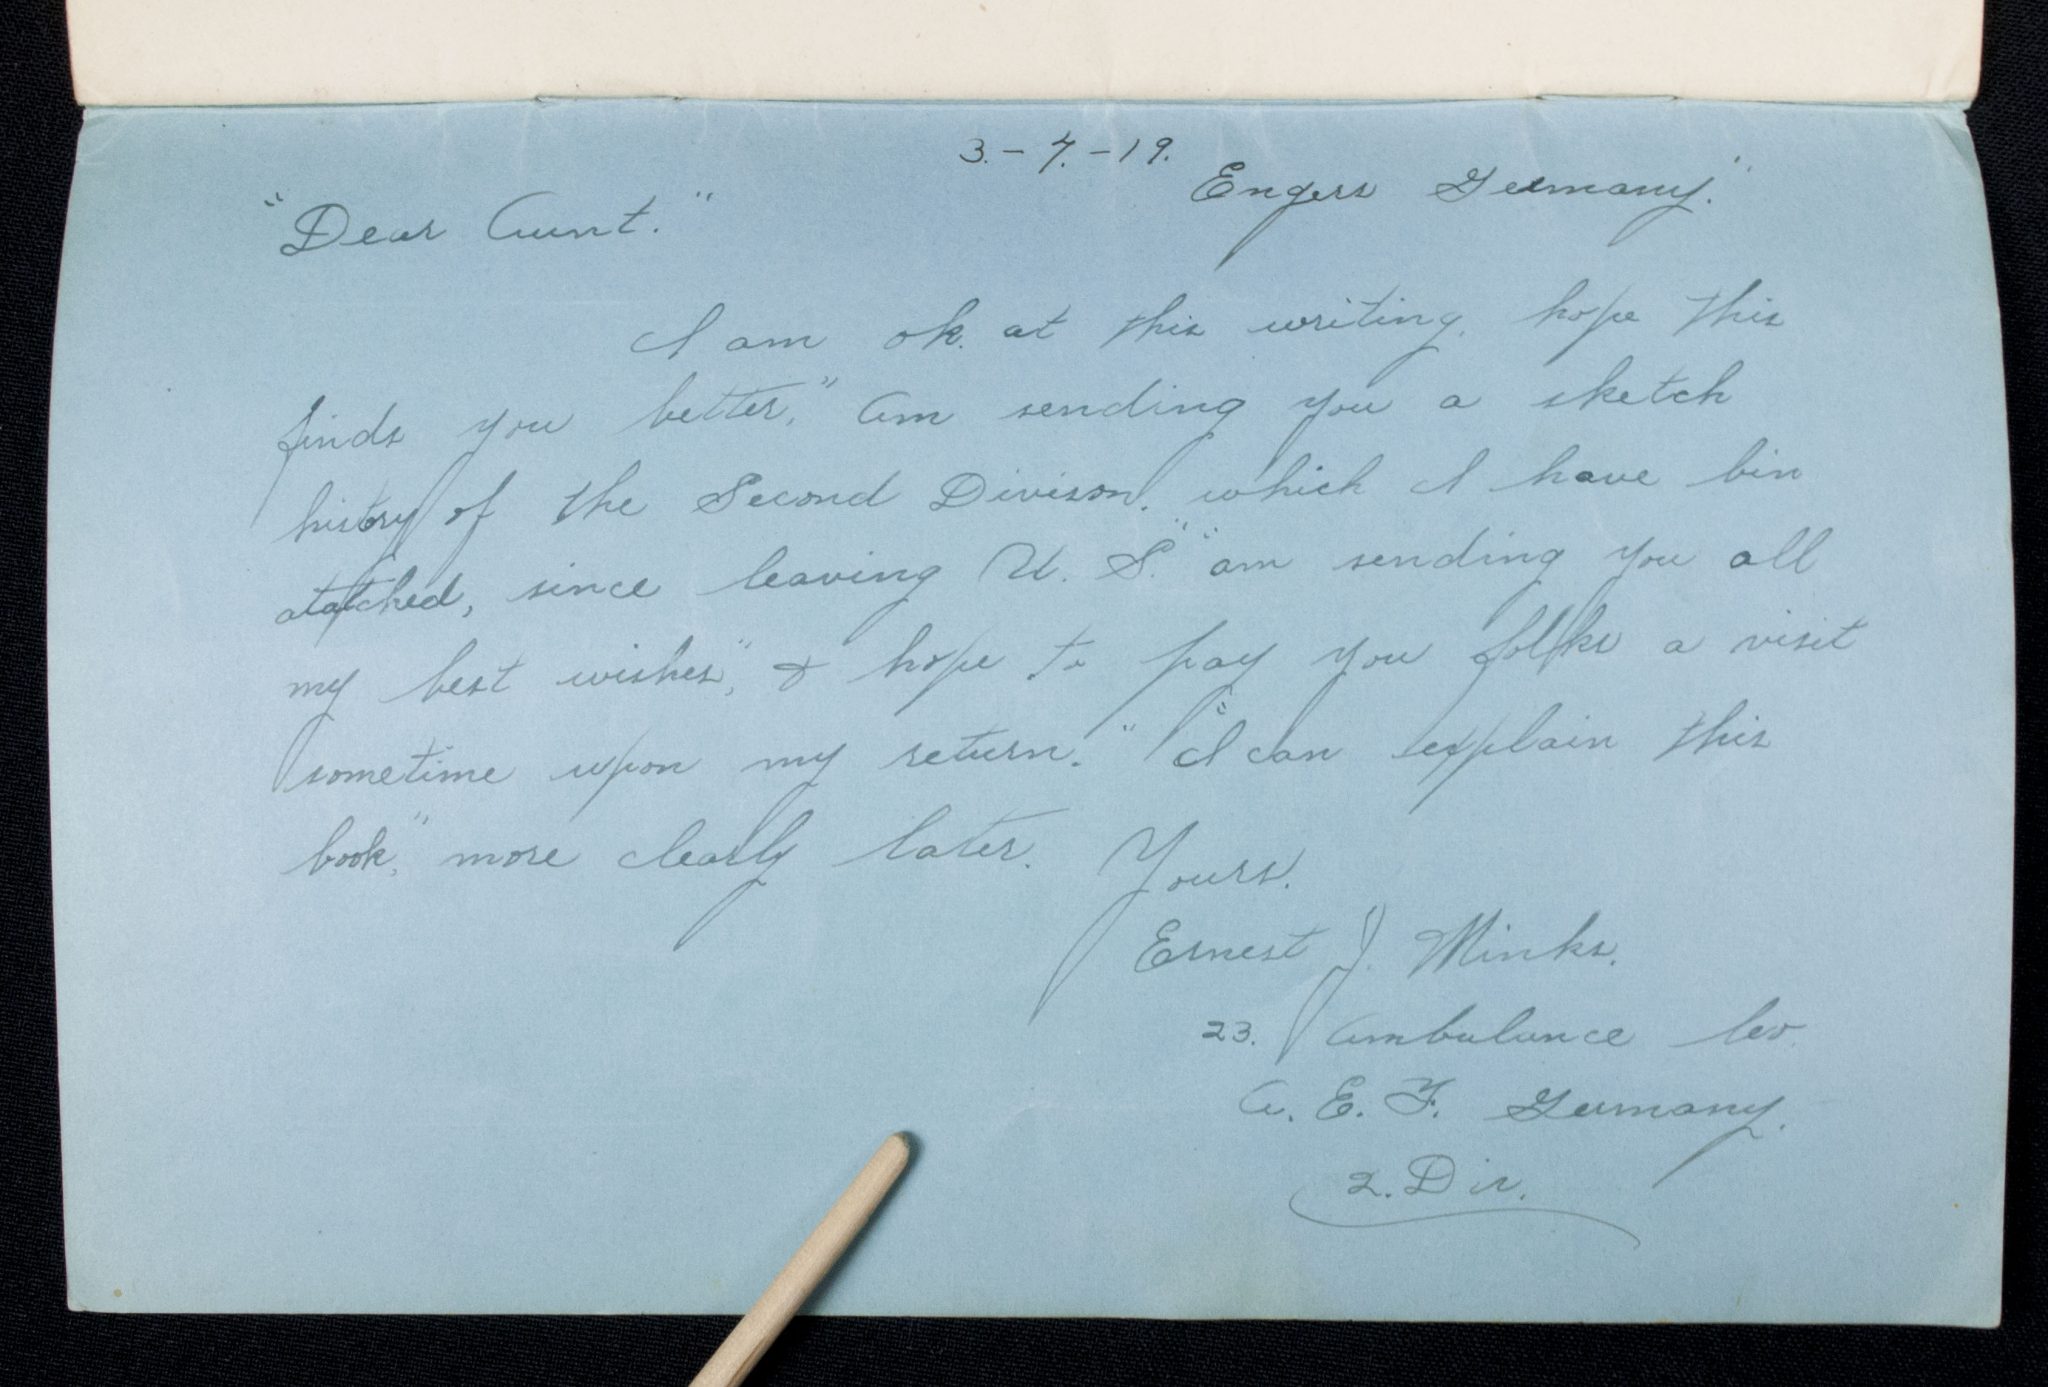 3.-7.-19.
Engers Germany."
"Dear Aunt."
I am ok. at this writing. hope this
finds you better." Am sending you a sketch
history of the Second Divison. which I have bin
atatched, since leaving U. S." "am sending you all
my best wishes," & hope to pay you folks a visit
sometime upon my return." "I can explain this
book," more clearly later.
Yours.
Ernest J. Minks.
23. Ambulance Co.
A. E. F. Germany.
2. Div.